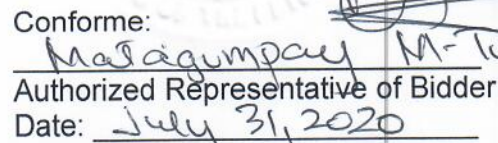 Conforme:
Matagumpay M-T
Authorized Representative of Bidder
Date: July 31, 2020